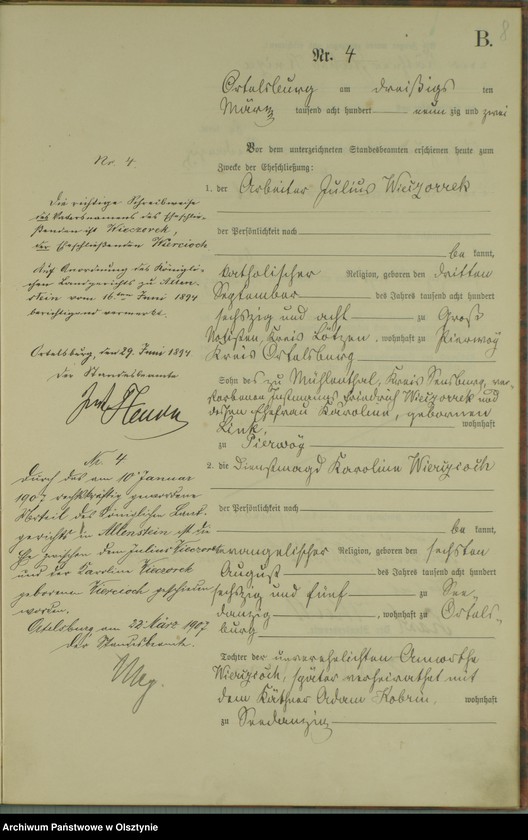 B.
8
Nr. 4
Ortelsburg am dreißigs ten
März tausend acht hundert neun zig und zwei
Vor dem unterzeichneten Standesbeamten erschienen heute zum
Zwecke der Eheschließung:
1. der Arbeiter Julius Wieczorrek
der Persönlichkeit nach
be kannt,
katholischer Religion, geboren den dritten
September des Jahres tausend acht hundert
sechszig und acht zu Groß
Notisten, Kreis Lötzen, wohnhaft zu Pierwoy
Kreis Ortelsburg
Sohn des zu Mühlenthal, Kreis Sensburg, ver-
storbenen Instmanns Friedrich Wieczorrek und
dessen Ehefrau Karoline, geborenen
Link, wohnhaft
zu Pierwoy
2. die Dienstmagd Karoline
der Persönlichkeit nach
be kannt,
evangelischer Religion, geboren den sechsten
August des Jahres tausend acht hundert
sechszig und fünf zu See-
danzig, wohnhaft zu Ortels-
burg
Tochter der unverehelichten
später verheirathet mit
dem Käthner Adam Kobrin, wohnhaft
zu Seedanzig
No. 4.
Die richtige Schreibweise
des Vatersnamens des Eheschlie-
ßenden ist Wieczorek,
der Eheschließenden Wiercioch
Auf Anordnung des Königli-
chen Landgerichts zu Allen-
stein vom 16ten Juni 1894
berichtigend vermerkt.
Ortelsburg, den 29. Juni 1894
Der Standesbeamte
Nr. 4
Durch das am 10 Januar
1907 rechtskräftig gewordene
Urteil des Königlichen Land-
gerichts in Allenstein ist die
Ehe zwischen dem Julius Wieczorek
und der Karoline Wieczorek
geborenen Wiercioch geschieden
worden.
Ortelsburg am 22 März 1907
Der Standesbeamte.
Archiwum Państwowe w Olsztynie